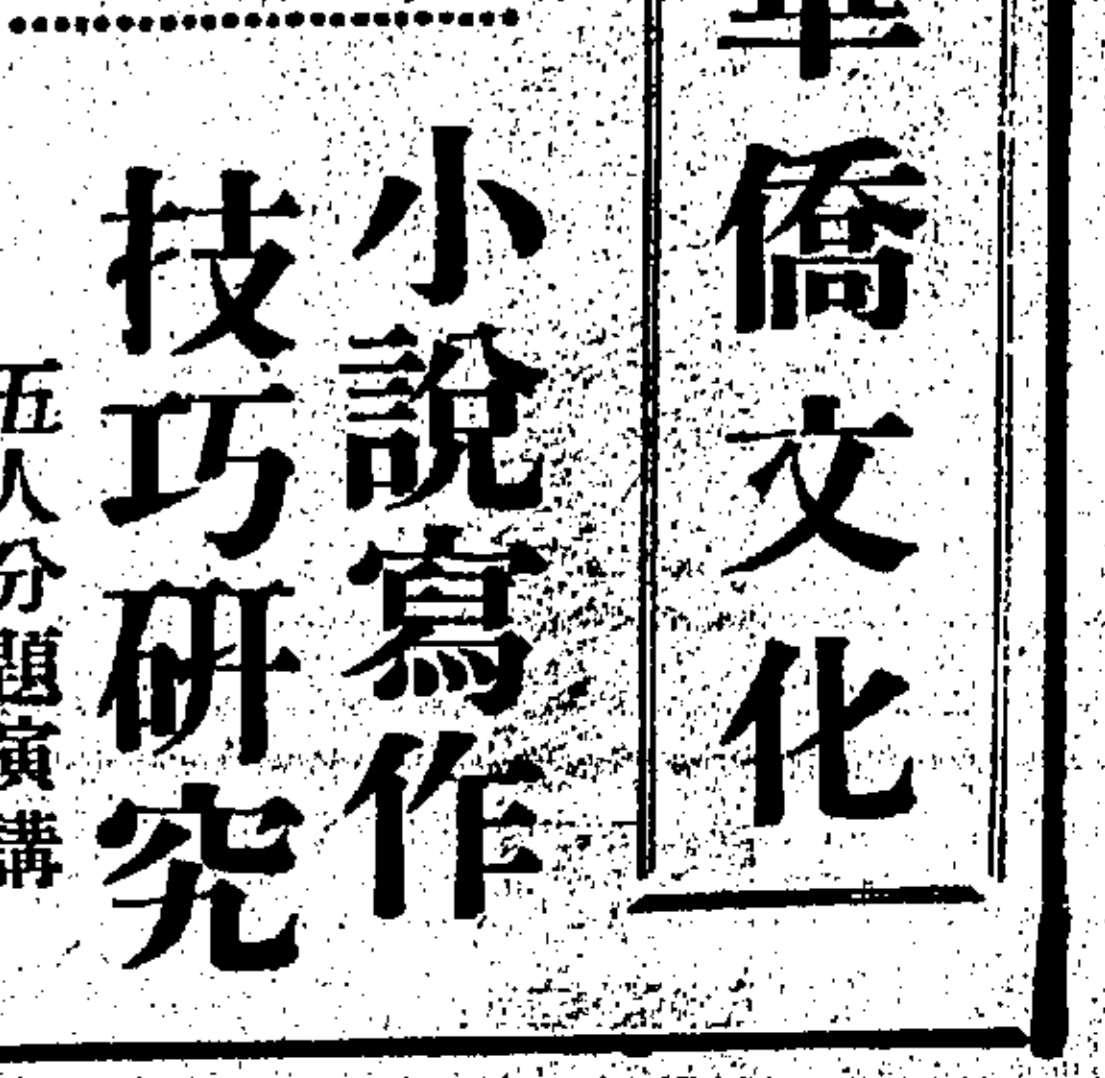 華僑文化
小說寫作
技巧研究
五人分題演講